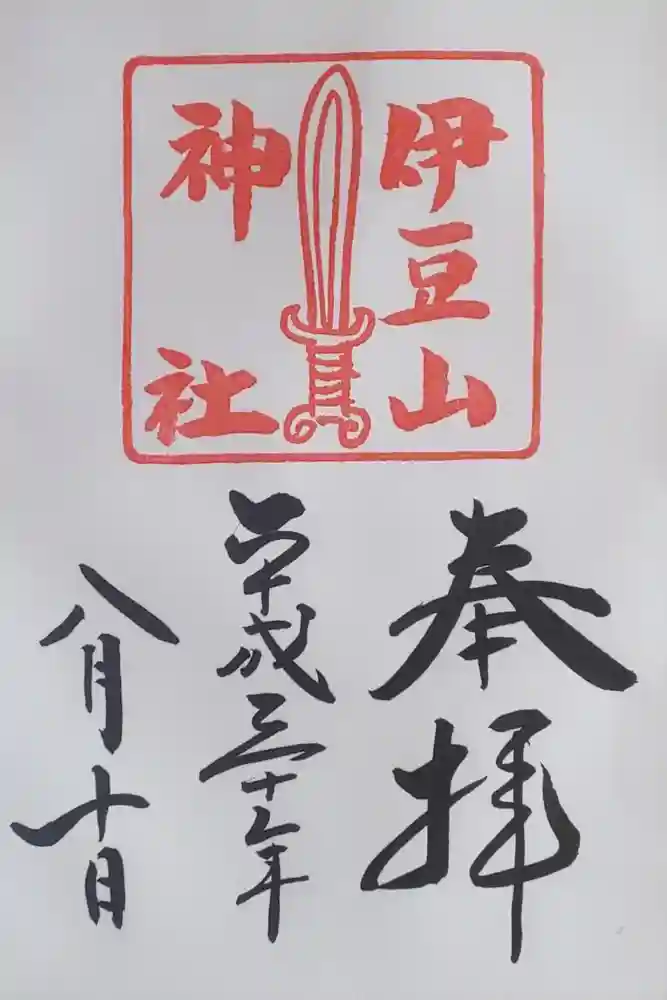 伊豆山
神社
奉拝
平成三十年
八月十日